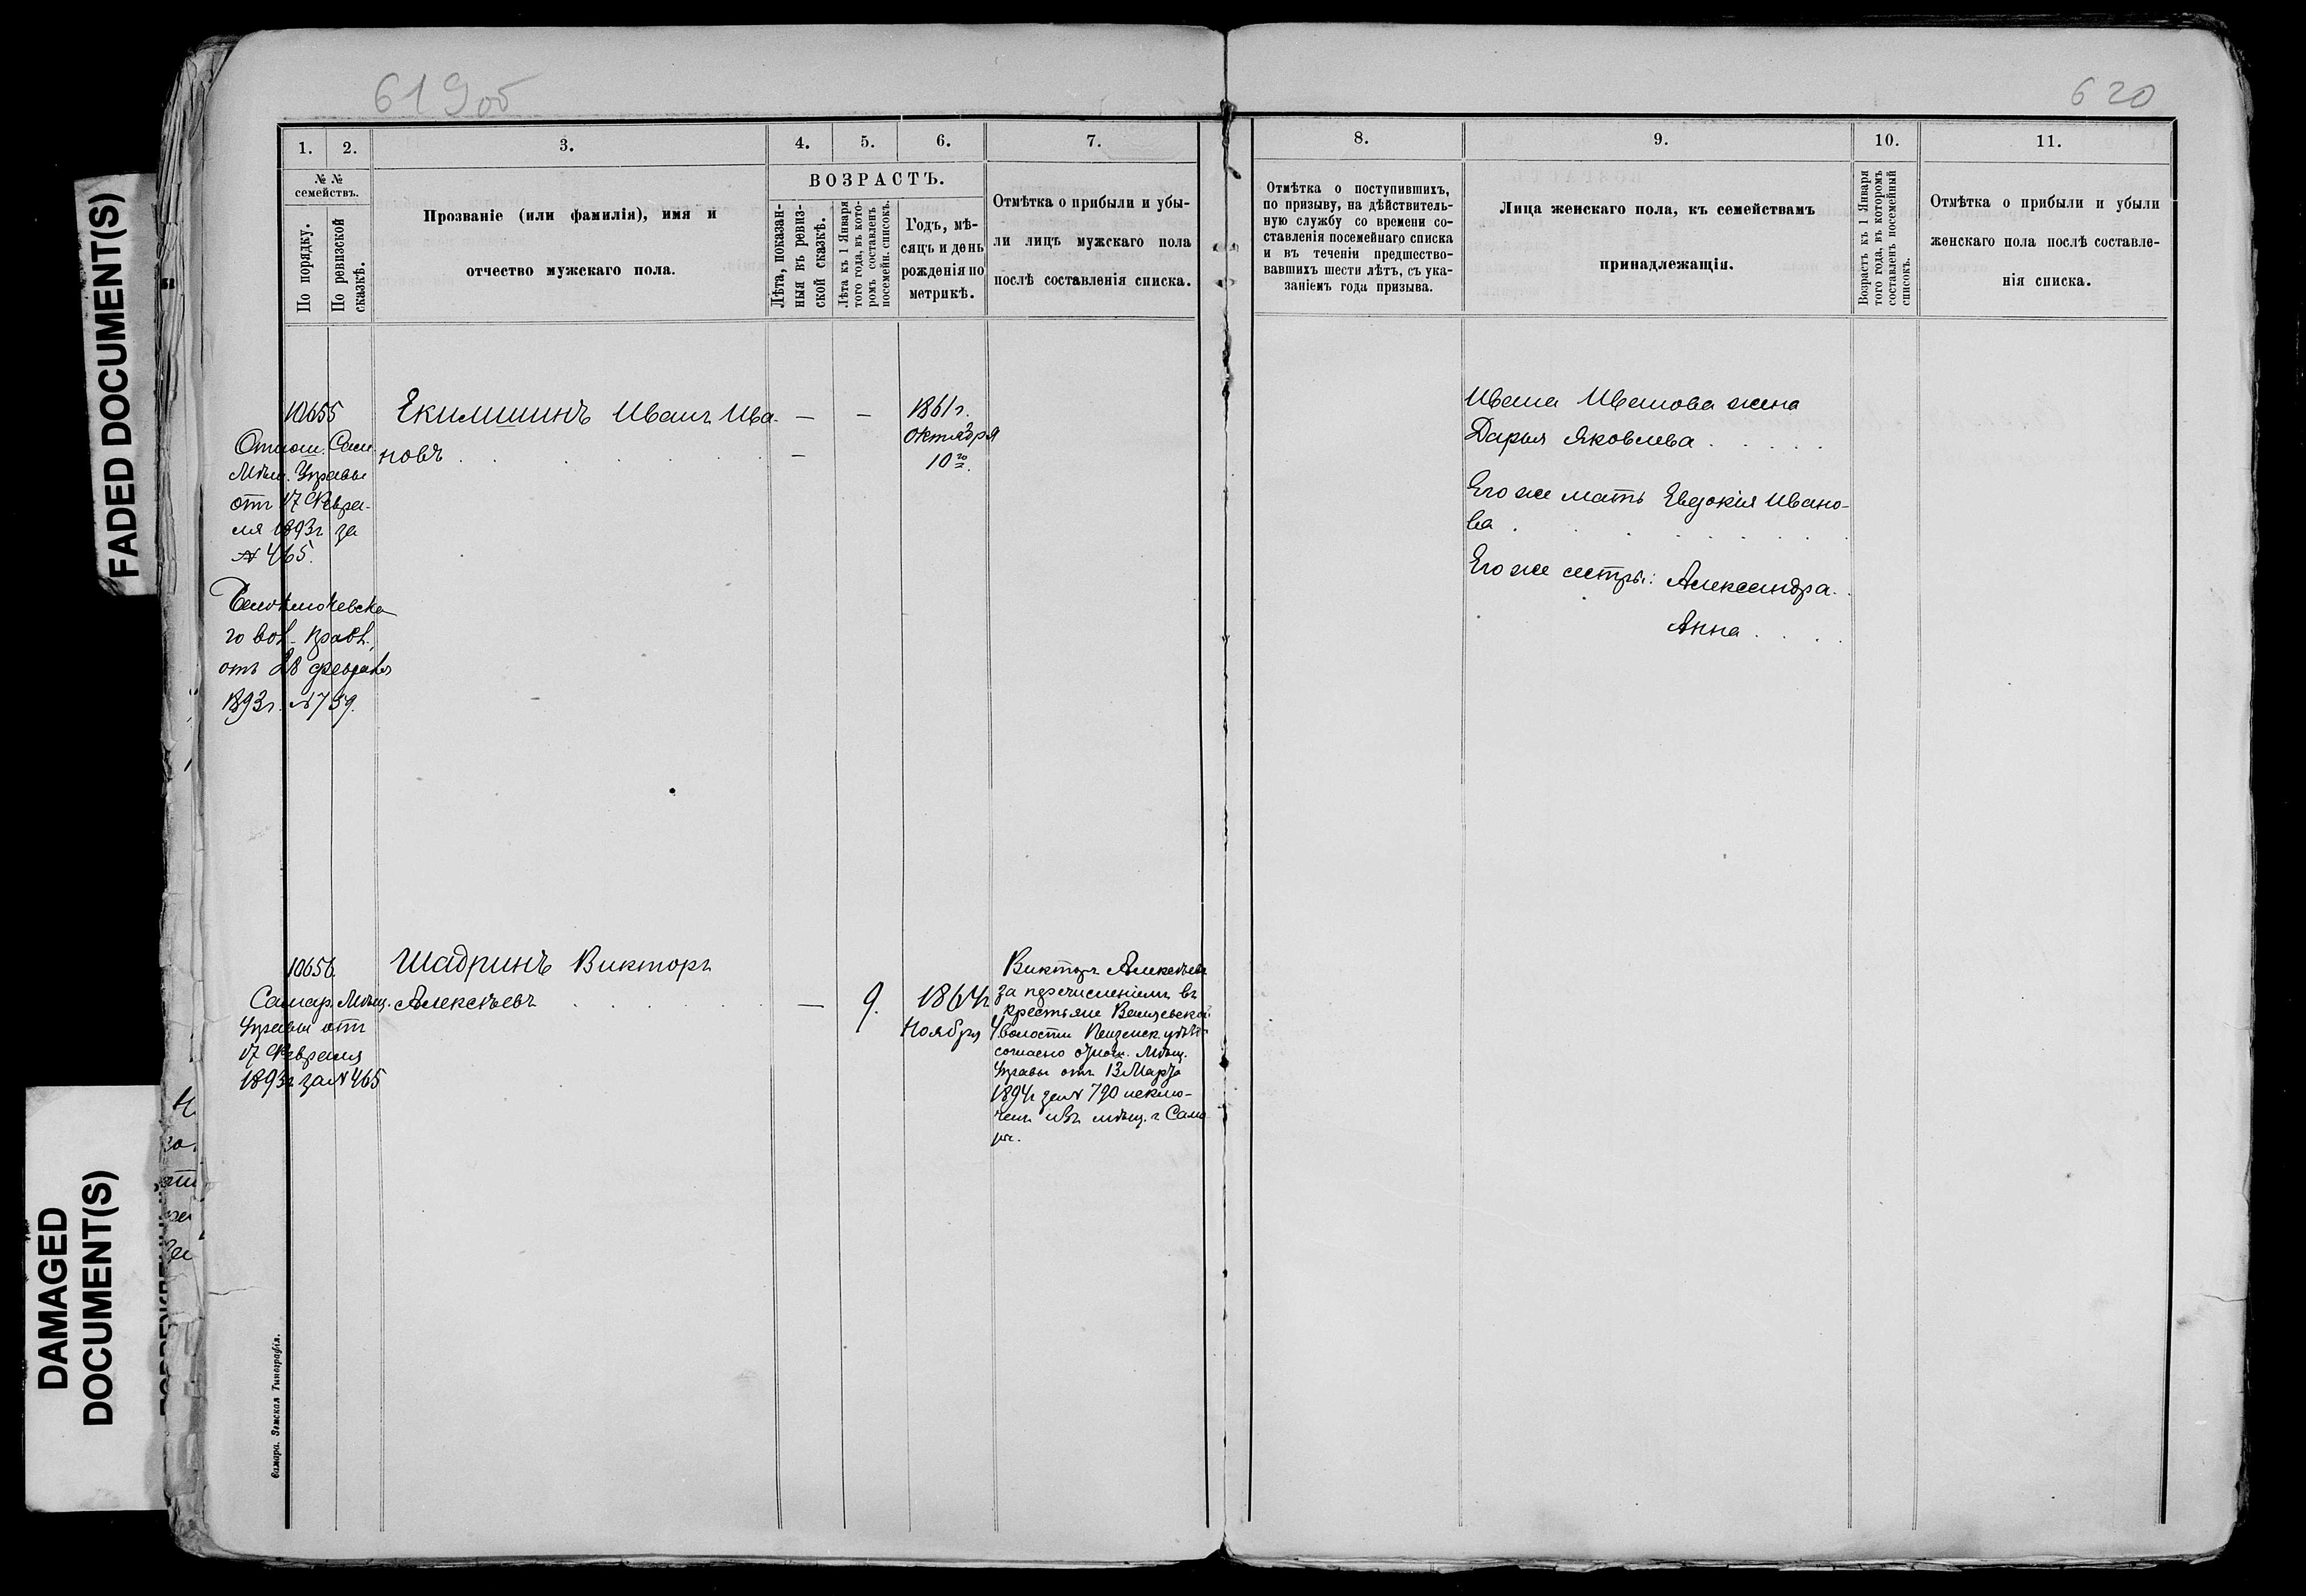 FADED DOCUMENT(S)
DAMAGED
DOCUMENT(S)
619об
1.
2.
3.
4.
5.
6.
7.
№ №
семействъ.
По порядку.
По ревизской
сказкѣ.
Прозваніе (или фамилія), имя и
отчество мужскаго пола.
ВОЗРАСТЪ.
Лѣта, показан-
ныя въ ревиз-
ской сказкѣ.
Лѣта къ 1 Января
того года, въ кото-
ромъ составленъ
посемейн. списокъ.
Годъ, мѣ-
сяцъ и день
рожденія по
метрикѣ.
Отмѣтка о прибыли и убы-
ли лицъ мужскаго пола
послѣ составленія списка.
10655
Отнош. Сам.
Мѣщ. Управы
отъ 17 Февра-
ля 1893г за
№ 465.
го вол. правл.
отъ 28 февраля
1893г. № 759.
Екимшинъ Иванъ Ива-
новъ
— —
—
1861г.
Октября
10го.
10656
Самар. Мѣщ.
Управы отъ
17 Февраля
1893г за № 465
Шадринъ Викторъ
Алексѣевъ
— 9.
1864г
Ноября 4
Викторъ Алексѣевъ
за перечисленіемъ въ
крестьяне
волости Пензенск. уѣзд
согласно отнош. Мѣщ.
Управы отъ 13 Марта
1894г за № 790 исклю-
ченъ изъ мѣщ. г Сама
ры.
Самара. Земская Типографія.
620
8.
9.
10.
11.
Отмѣтка о поступившихъ,
по призыву, на дѣйствитель-
ную службу со времени со-
ставленія посемейнаго списка
и въ теченіи предшество-
вавшихъ шести лѣтъ, съ ука-
заніемъ года призыва.
Лица женскаго пола, къ семействамъ
принадлежащія.
Возрастъ къ 1 Января
того года, въ которомъ
составленъ посемейный
списокъ.
Отмѣтка о прибыли и убыли
женскаго пола послѣ составле-
нія списка.
Ивана Иванова жена
Дарья Яковлева
Его же мать Евдокія Ивано-
ва
Его же сестры: Александра
Анна